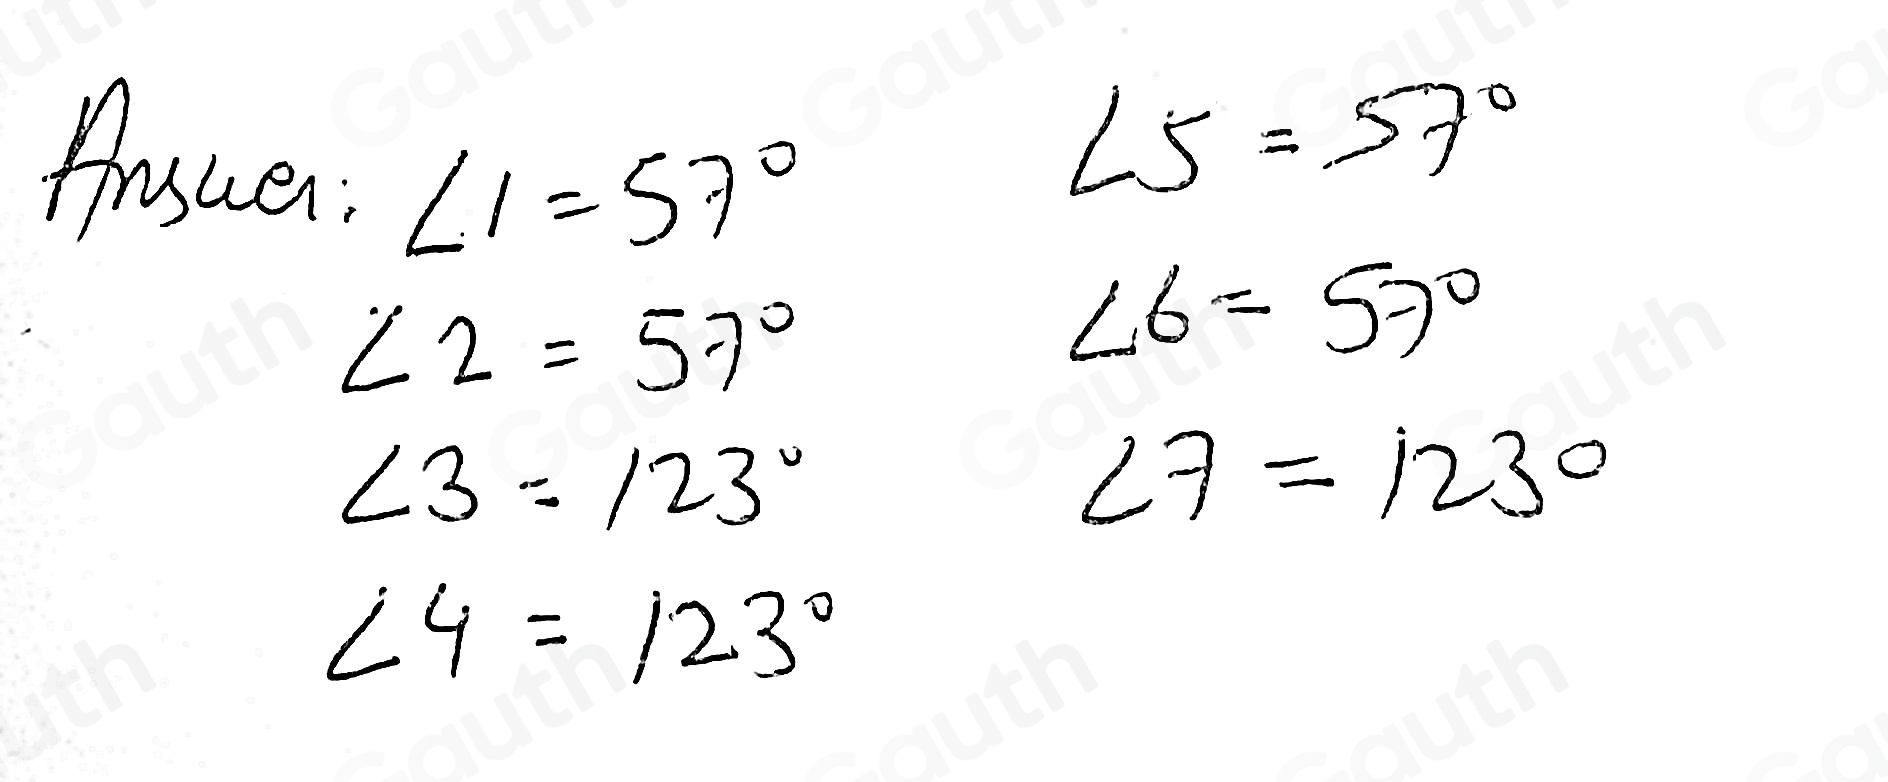 Answer: ∠1 = 57°
∠2 = 57°
∠3 = 123°
∠4 = 123°
∠5 = 57°
∠6 = 57°
∠7 = 123°
Gauth